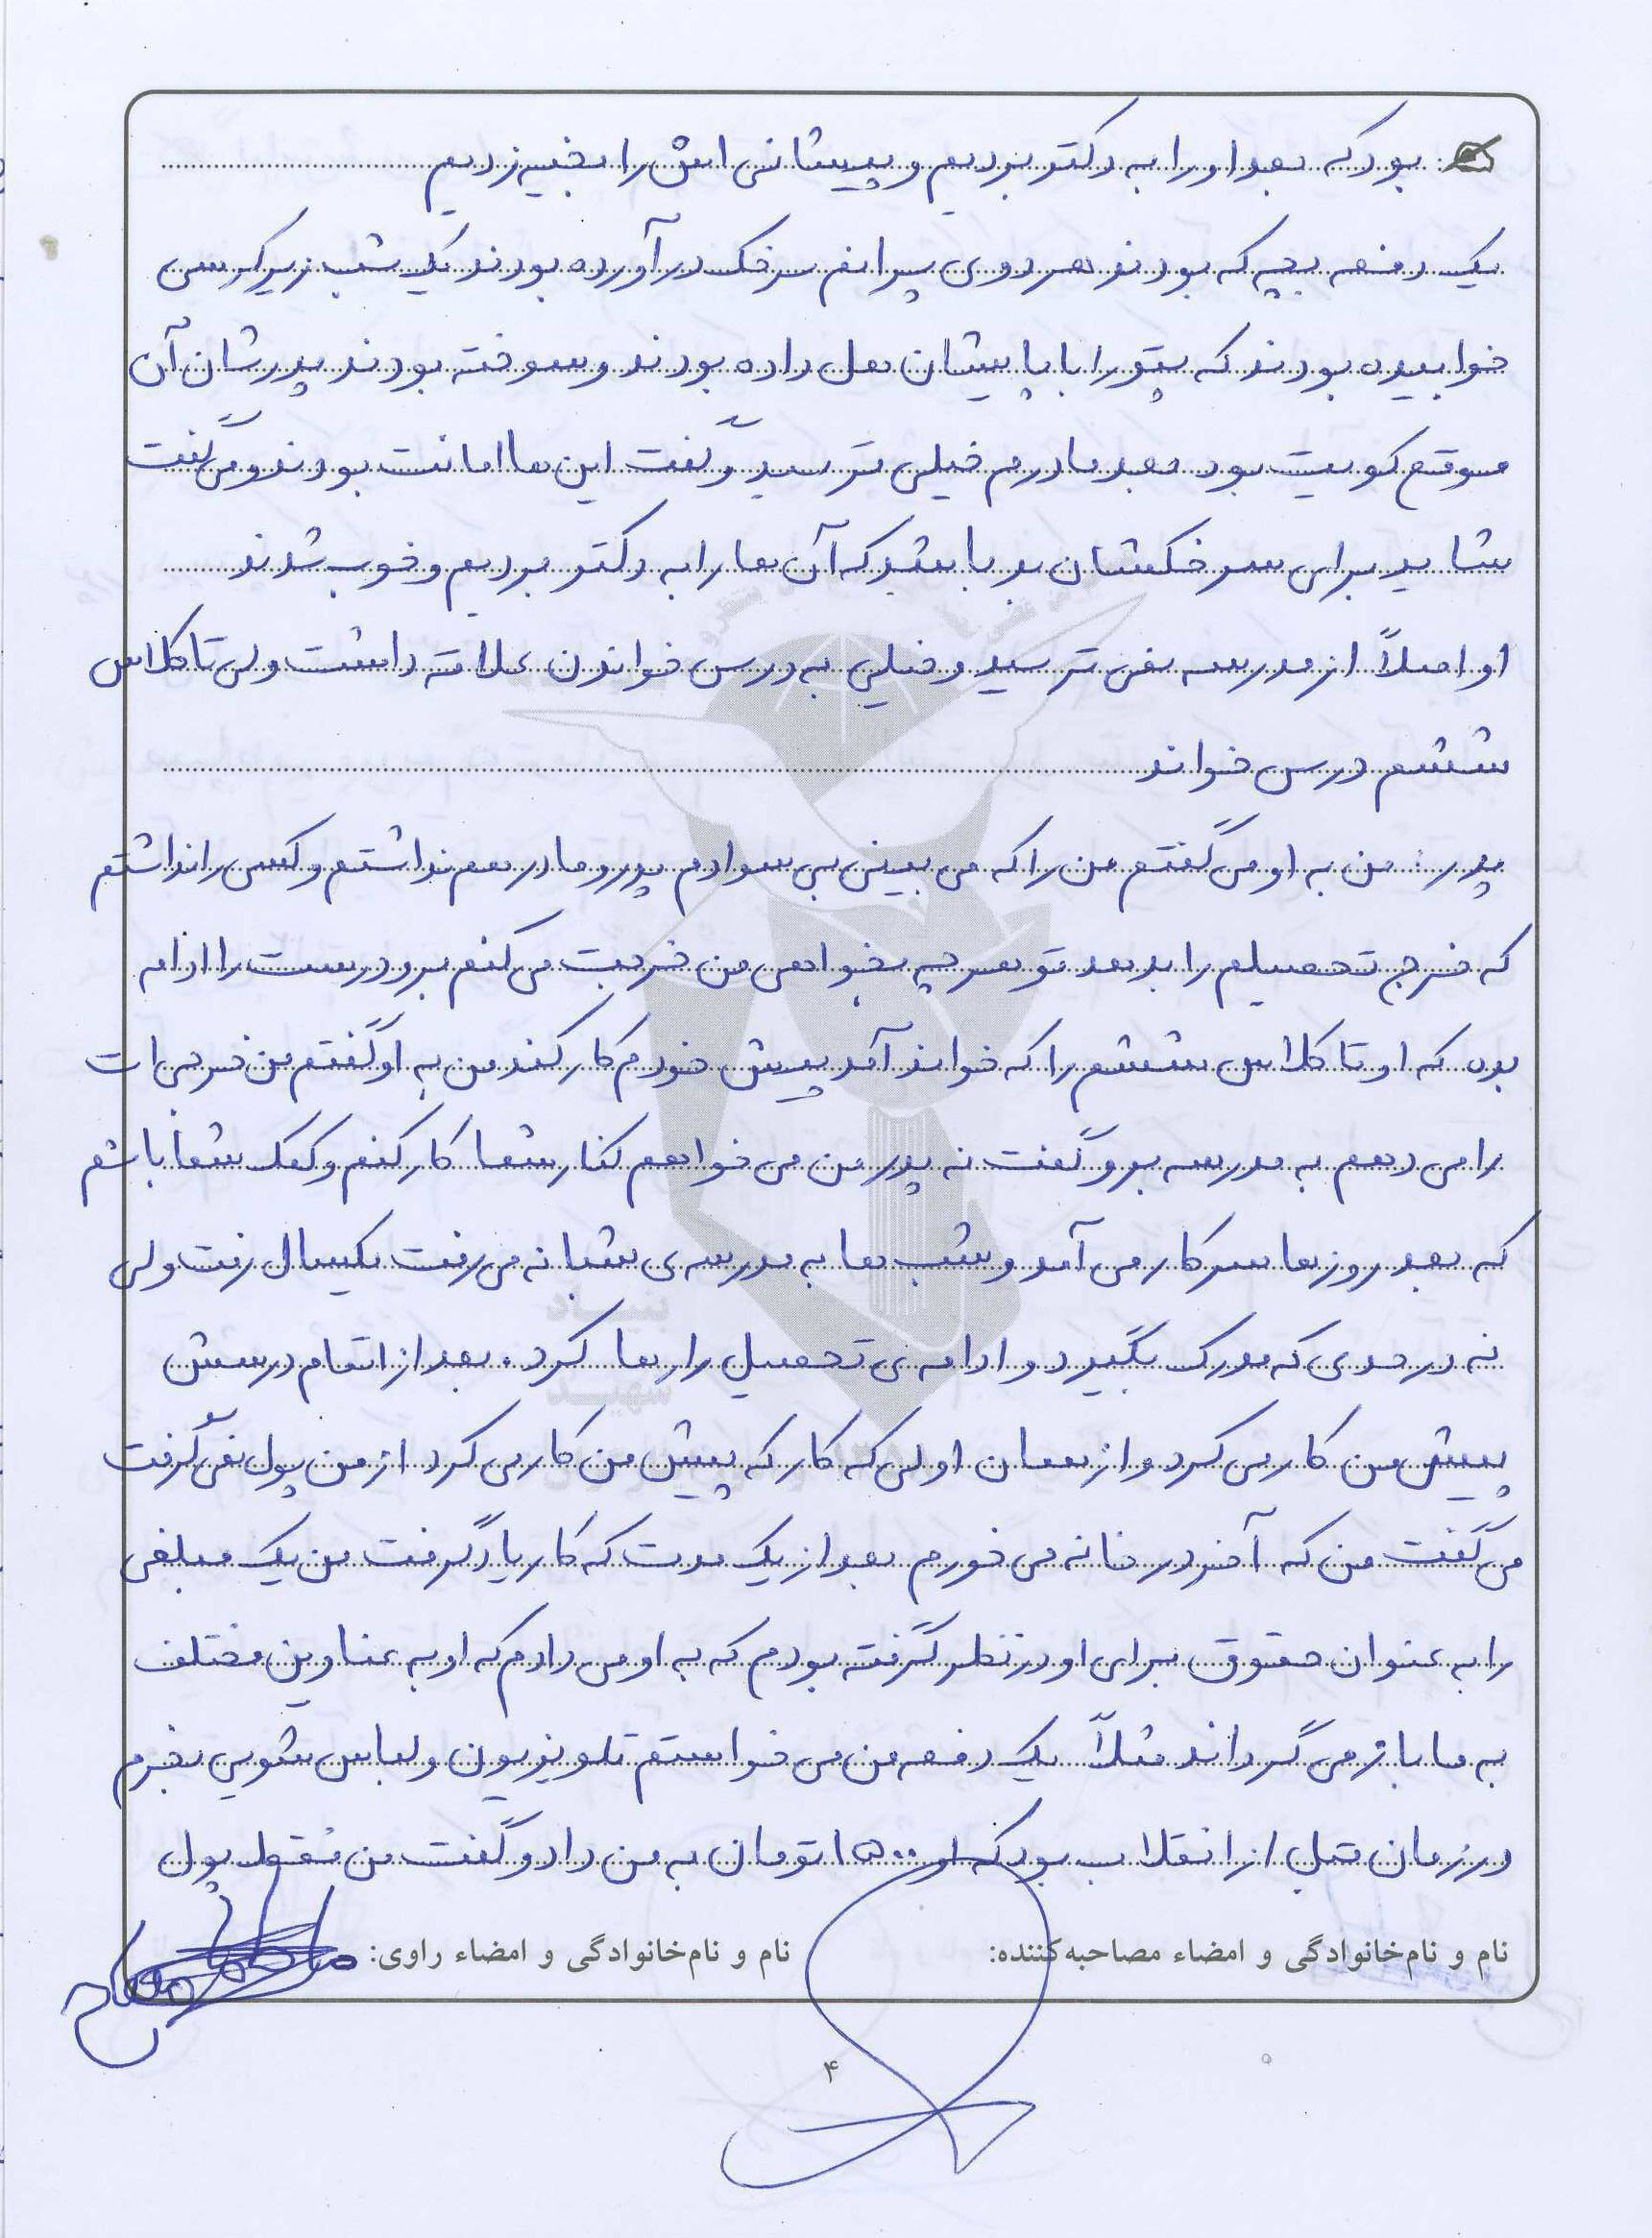 بود که بعد او را به دکتر بردیم و پیشانی اش را بخیه زدیم
یک دفعه بچه که بودند هر دوی پسرانم سرخک درآورده بودند یک شب زیر کرسی
خوابیده بودند که پتو را با پایشان هل داده بودند و سوخته بودند پدرشان آن
موقع کویت بود بعد مادرم خیلی ترسید و گفت این ها امانت بودند و می گفت
شاید برای سرخکشان بد باشد که آن ها را به دکتر بردیم و خوب شدند
او اصلاً از مدرسه نمی ترسید و خیلی به درس خواندن علاقه داشت ولی تا کلاس
ششم درس خواند
پدر : من به او می گفتم من را که می بینی بی سوادم پدر و مادر هم نداشتم و کسی را نداشتم
که خرج تحصیلم را بدهد تو هر چه بخواهی من خرجت می کنم برو درست را ادامه
بده که او تا کلاس ششم را که خواند آمد پیش خودم کار کند من به او گفتم من خرجی ات
را می دهم به مدرسه برو گفت نه پدر من می خواهم کنار شما کار کنم و کمک شما باشم
که بعد روزها سر کار می آمد و شب ها به مدرسه ی شبانه می رفت یکسال رفت ولی
نه در حدی که مدرک بگیرد و ادامه ی تحصیل را رها کرد. بعد از اتمام درسش
پیش من کار می کرد و از همان اولی که کار که پیش من کار می کرد از من پول نمی گرفت
می گفت من که آخر در خانه می خورم بعد از یک مدت که کار یاد گرفت من یک مبلغی
را به عنوان حقوق برای او در نظر گرفته بودم که به او می دادم که او به عناوین مختلف
به ما باز می گرداند مثلاً یک دفعه من می خواستم تلویزیون و لباس شویی بخرم
در زمان قبل از انقلاب بود که او ۱۵۰۰ تومان به من داد و گفت من نقول پول
نام و نام‌خانوادگی و امضاء مصاحبه‌کننده:
نام و نام‌خانوادگی و امضاء راوی:
۴
بنیاد
شهید